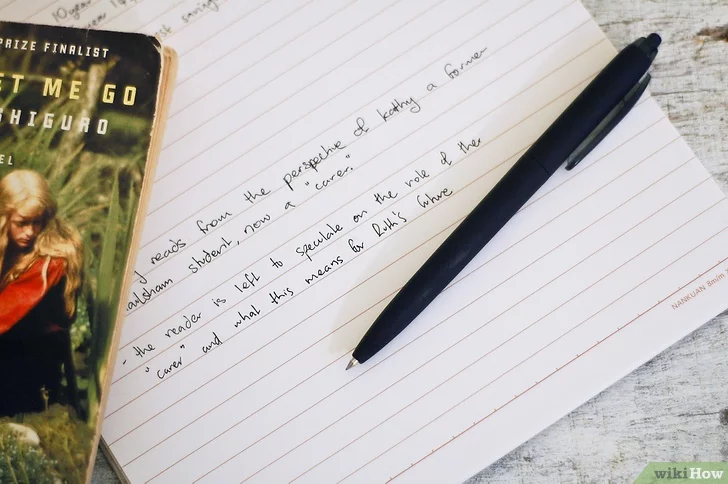 PRIZE FINALIST
ET ME GO
SHIGURO
EL
10 year
y reads from the perspective of Kathy a former
ailsham student, now a "carer."
- the reader is left to speculate on the role of ther
"carer" and what this means for Ruth's future
NANKUAN 8m/m
wikiHow